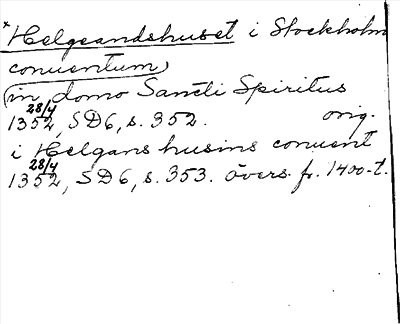 *Helgeandshuset i Stockholm
conventum)
(in domo Sancti Spiritus
28/4
1352, SD6, s. 352. orig.
i Helgans husins conuent
28/4
1352, SD6, s. 353. övers. fr. 1400-t.